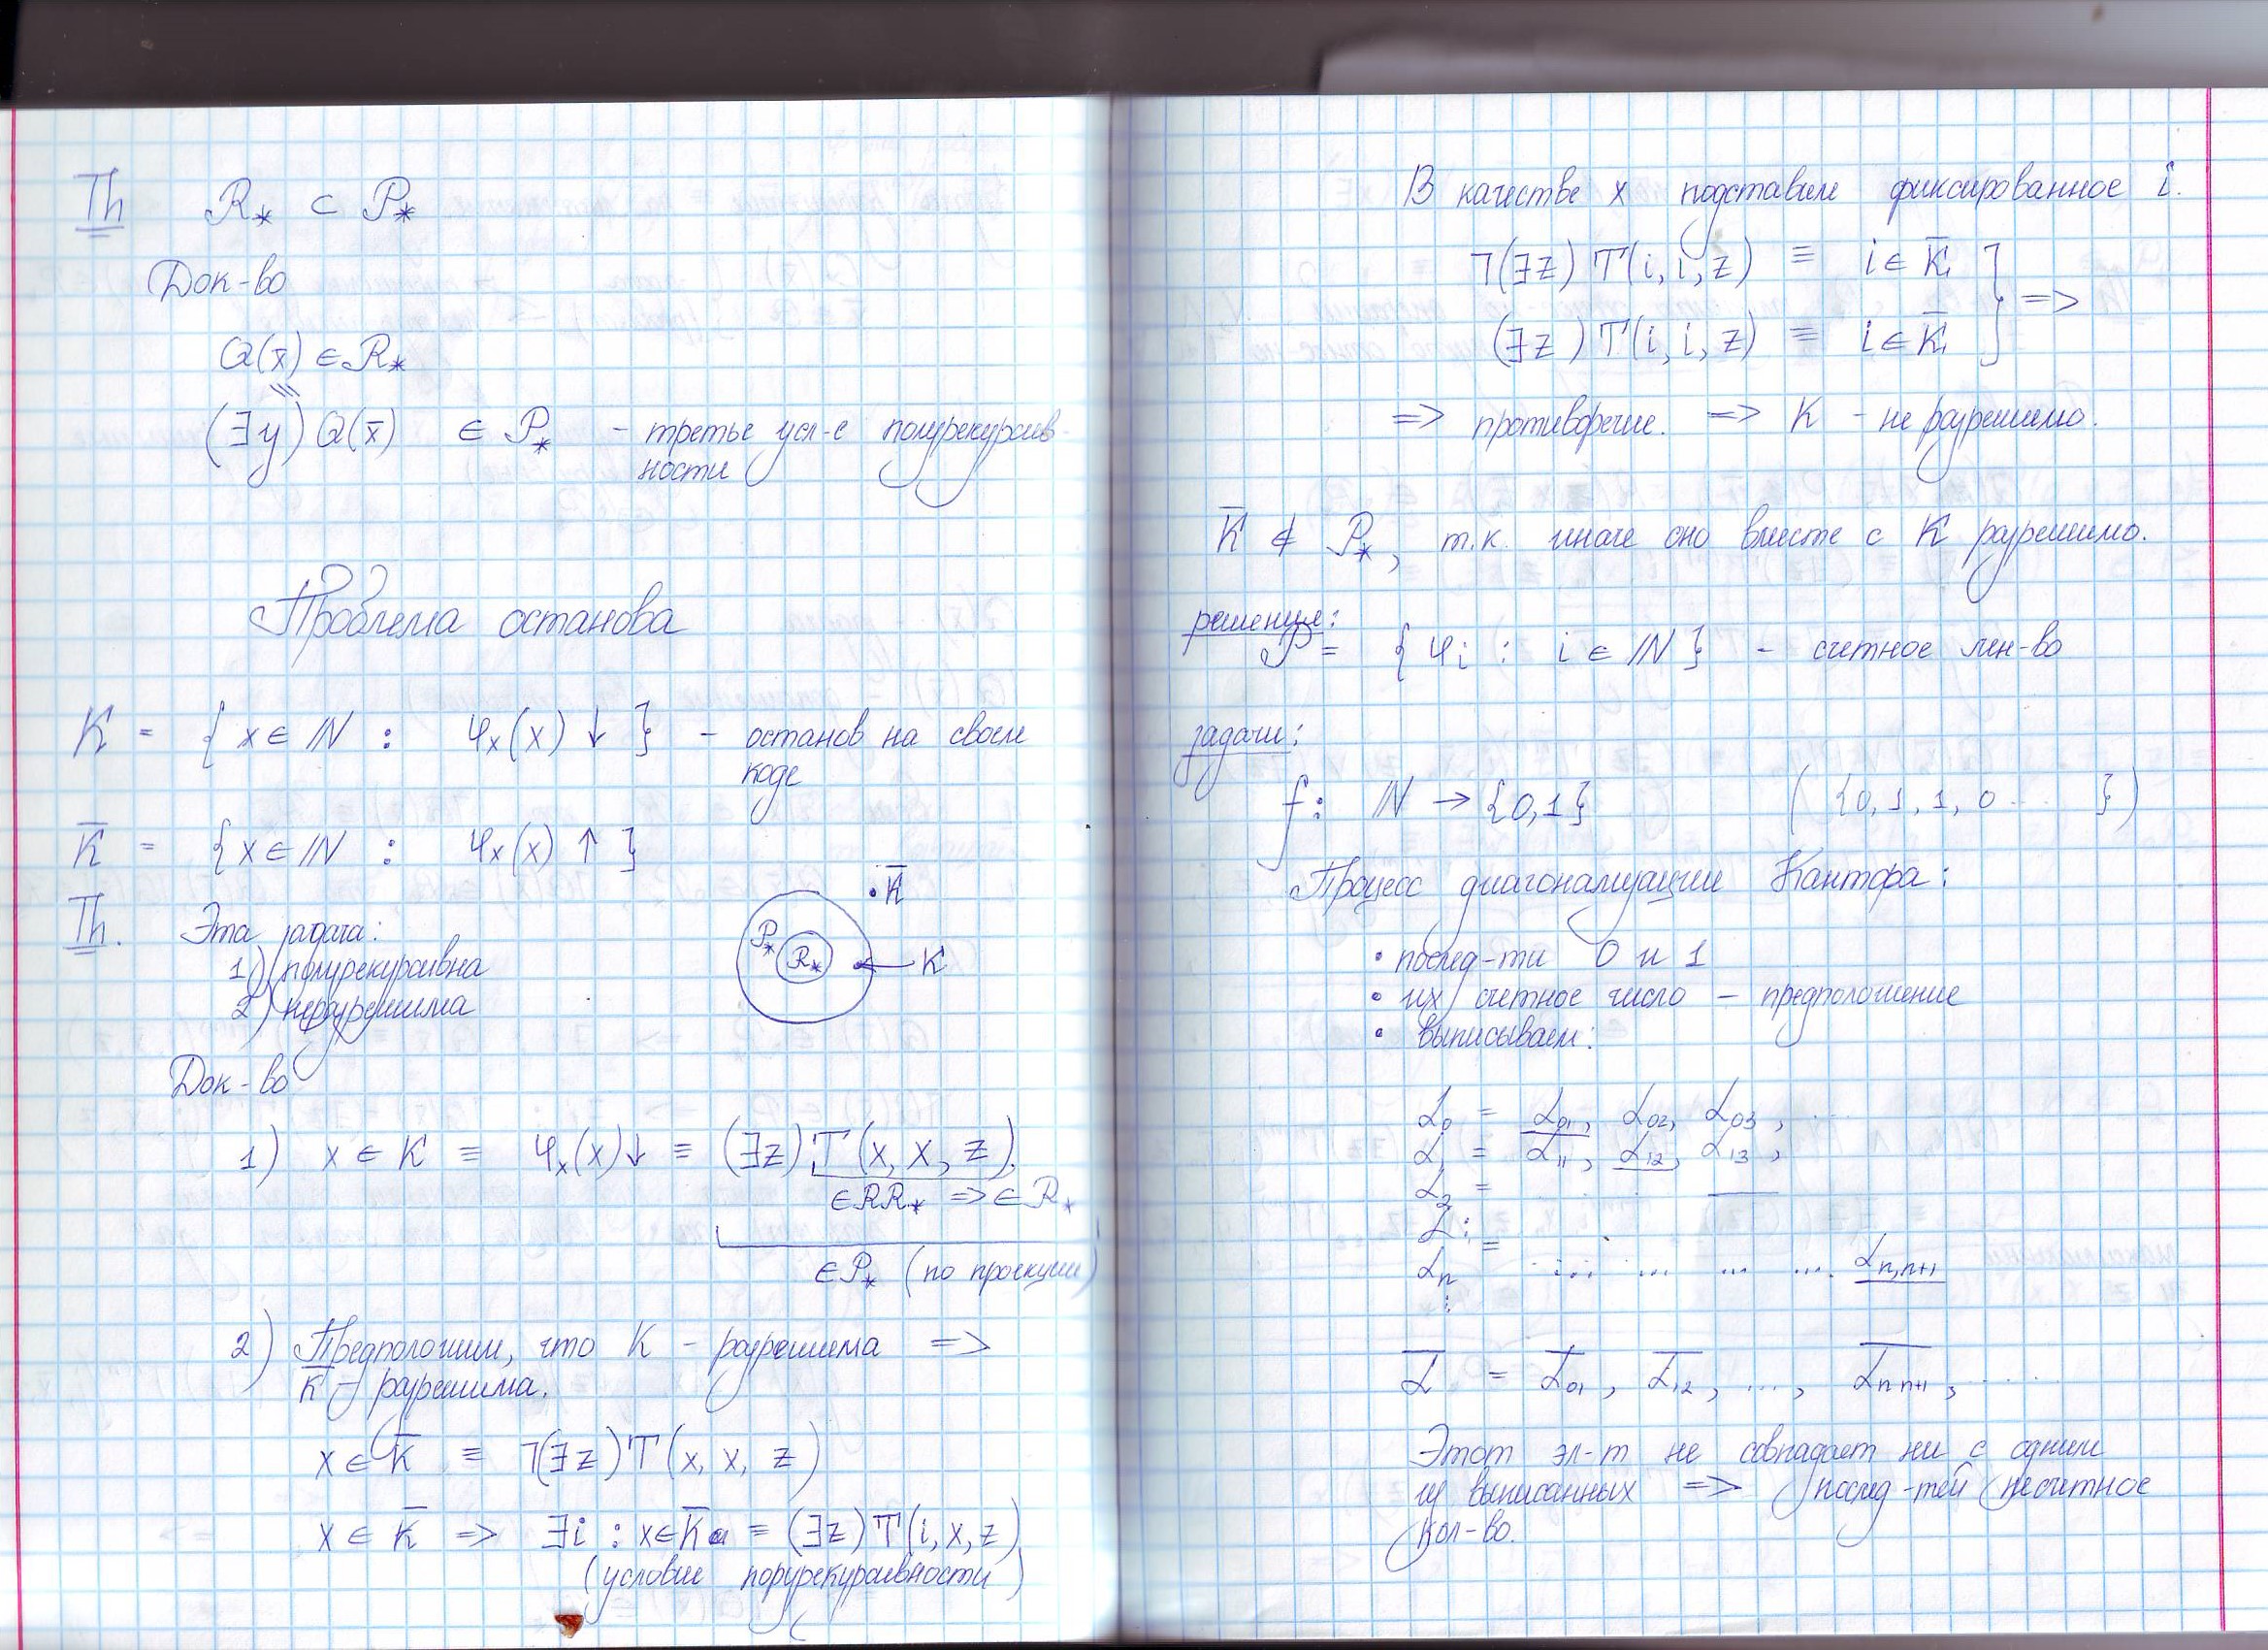 Th R* ⊂ P*
Док-во
Q(x̄) ∈ R*
≡
(∃y) Q(x̄) ∈ P* - третье усл-е полурекурсив-
ности
Проблема останова
K = { x ∈ ℕ : φx(x) ↓ } - останов на своем
коде
K̄ = { x ∈ ℕ : φx(x) ↑ }
Th. Эта задача:
1) полурекурсивна
2) неразрешима
P* R* K K̄
Док-во
1) x ∈ K ≡ φx(x)↓ ≡ (∃z) T(x, x, z)
∈RR* => ∈R*
∈P* (по проекции)
2) Предположим, что K - разрешима =>
K̄ - разрешима.
x ∈ K̄ ≡ ¬(∃z) T(x, x, z)
x ∈ K̄ => ∃i : x∈K̄ ≡ (∃z) T(i, x, z)
(условие порурекурсивности)
В качестве x подставим фиксированное i.
¬(∃z) T(i, i, z) ≡ i ∈ K̄
(∃z) T(i, i, z) ≡ i ∈ K̄ } =>
=> противоречие. => K - не разрешимо.
K̄ ∉ P*, т.к. иначе оно вместе с K разрешимо.
решенние:
P = { φi : i ∈ ℕ } - счетное мн-во
задачи:
f : ℕ → {0,1} ( {0, 1, 1, 0 ... } )
Процесс диагонализации Кантора:
• послед-ти 0 и 1
• их счетное число - предположение
• выписываем:
α0 = α01, α02, α03, ...
α1 = α11, α12, α13,
α2 =
αn = ... ... ... ... αn,n+1
ᾱ = ᾱ01, ᾱ12, ..., ᾱn n+1, ...
Этот эл-т не совпадает ни с одним
из выписанных => послед-тей несчетное
кол-во.